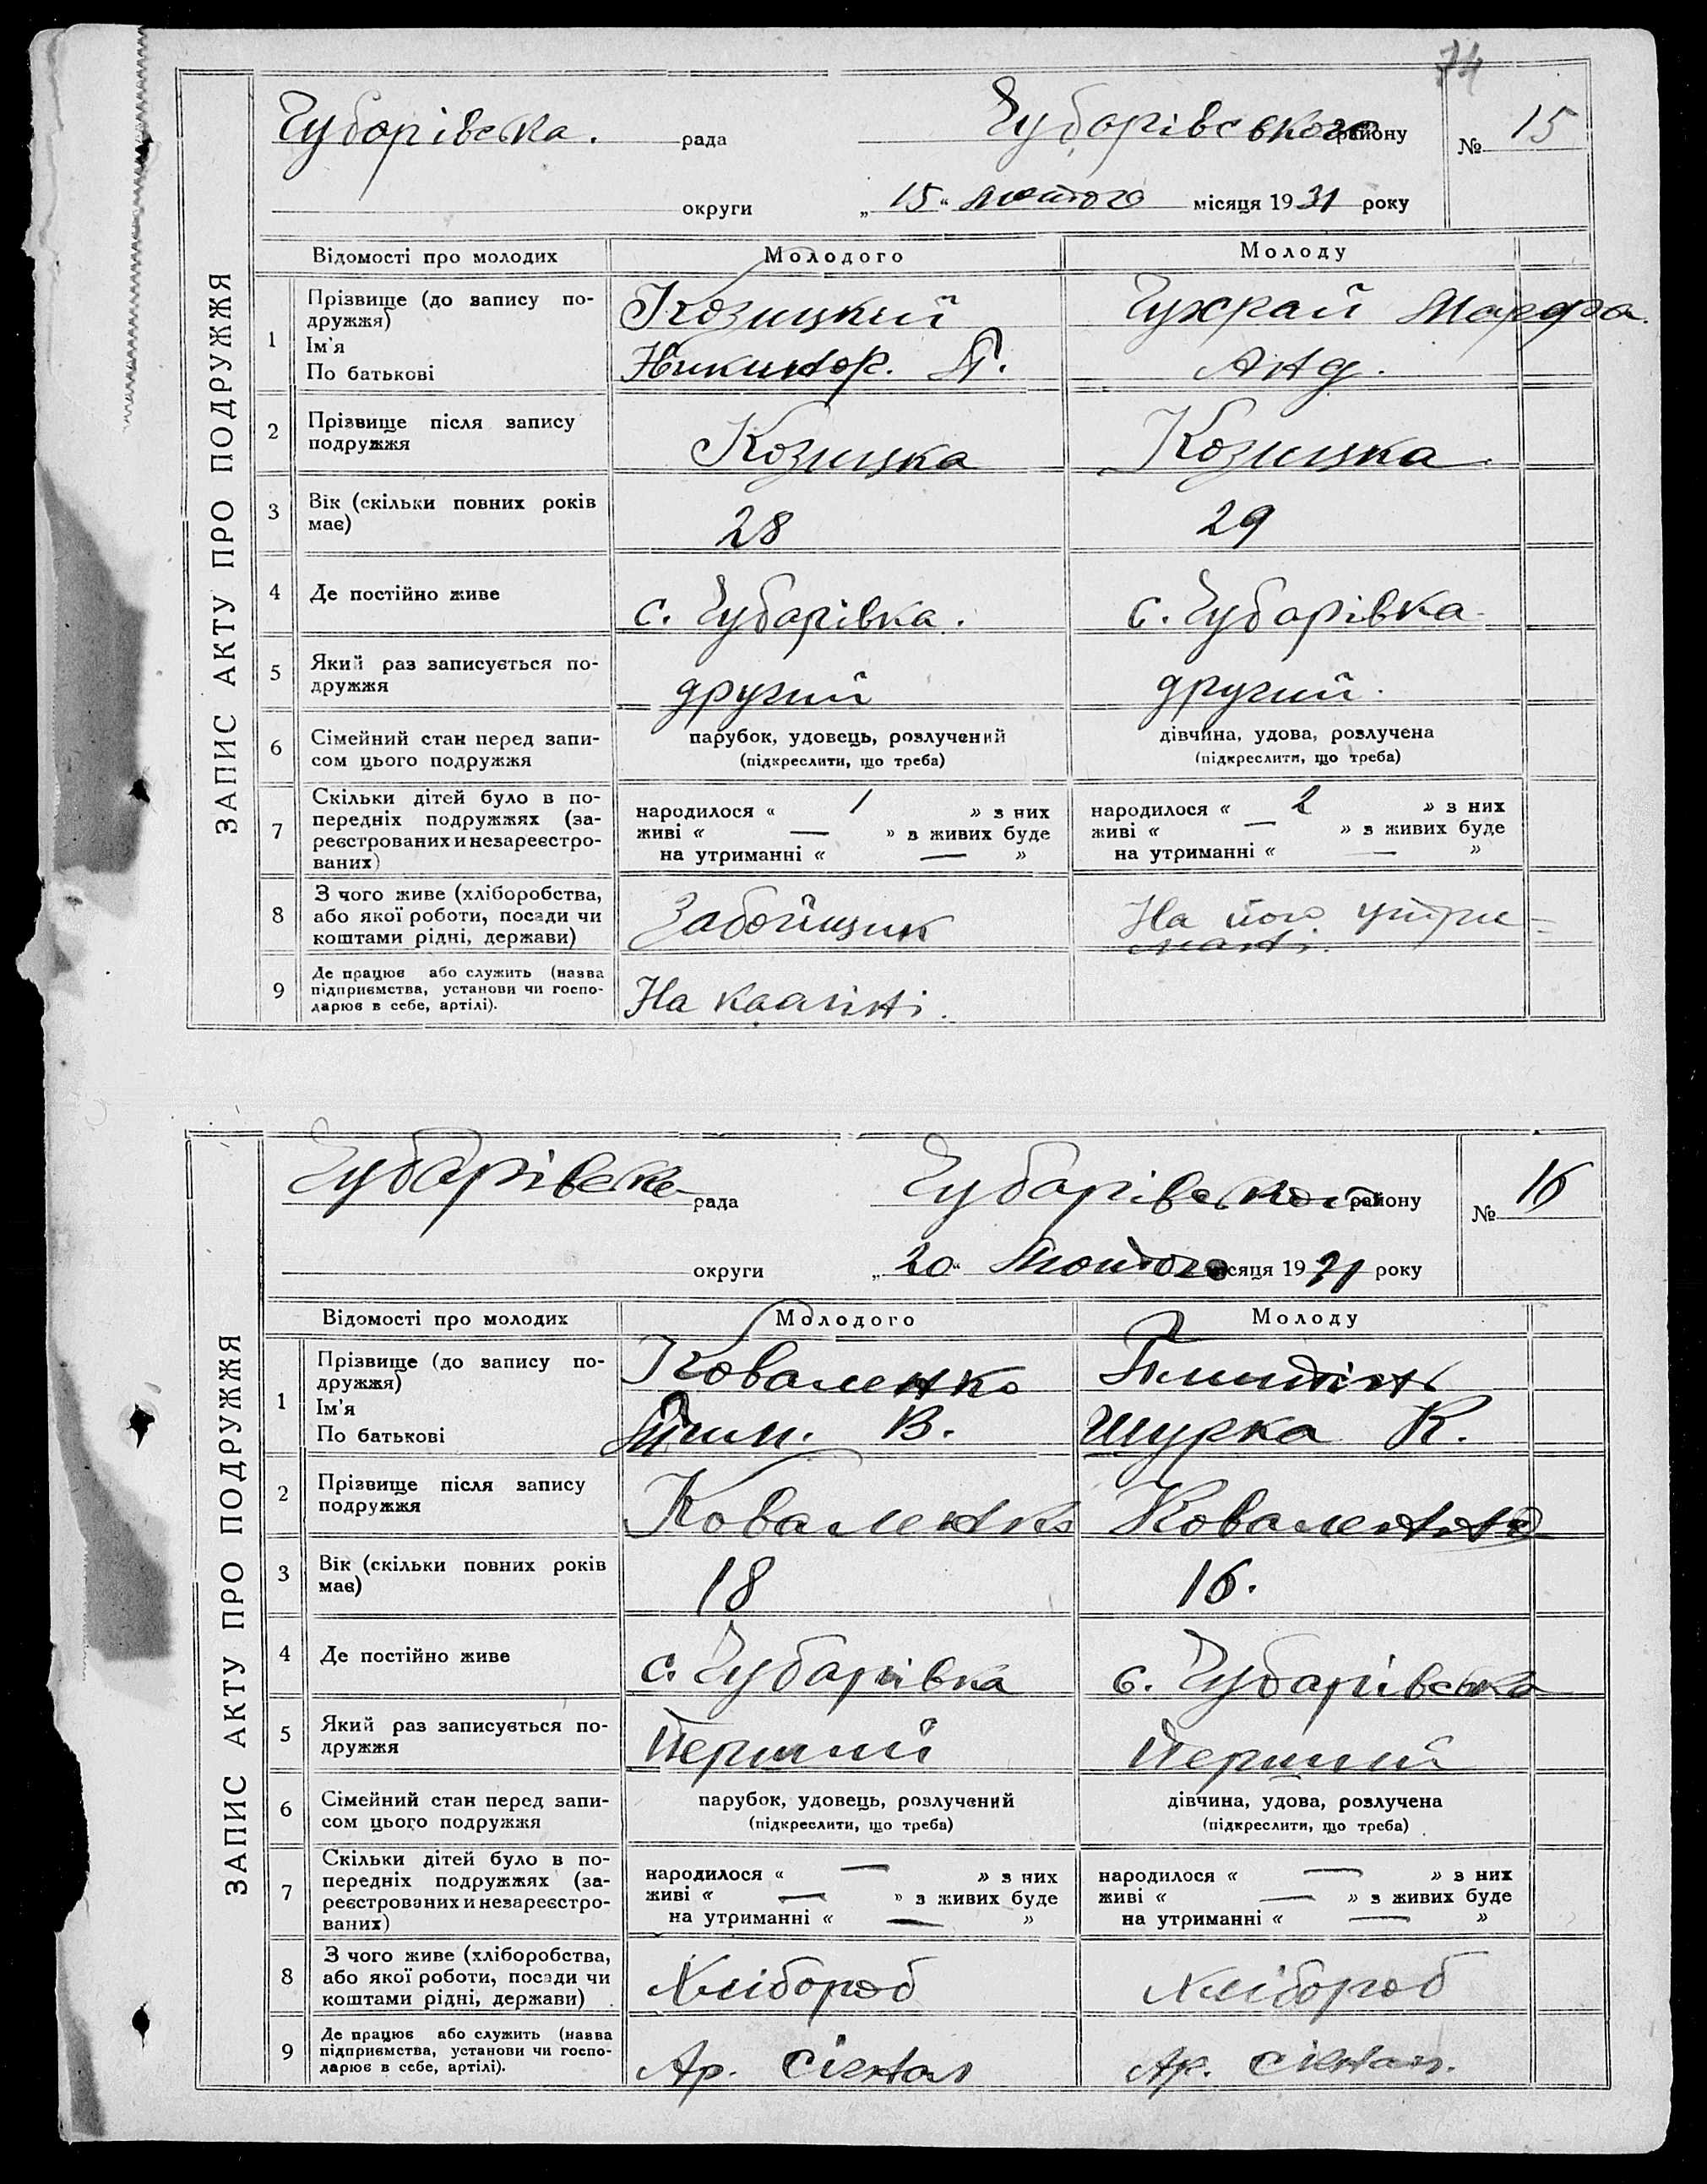 74
Чубарівська. рада Чубарівського району № 15
округи „15“ лютого місяця 1931 року
ЗАПИС АКТУ ПРО ПОДРУЖЖЯ
Відомості про молодих Молодого Молоду
1 Прізвище (до запису подружжя) Козицкий Чухрай Марфа
Ім'я
По батькові Никинор. П. Анд.
2 Прізвище після запису подружжя Козицка Козицка
3 Вік (скільки повних років має) 28 29
4 Де постійно живе с. Чубарівка. с. Чубарівка
5 Який раз записується подружжя другий другий.
6 Сімейний стан перед записом цього подружжя парубок, удовець, розлучений дівчина, удова, розлучена
(підкреслити, що треба) (підкреслити, що треба)
7 Скільки дітей було в попередніх подружжях (зареєстрованих и незареєстрованих) народилося « 1 » з них народилося « 2 » з них
живі « — » з живих буде живі « — » з живих буде
на утриманні « — » на утриманні « — »
8 З чого живе (хліборобства, або якої роботи, посади чи коштами рідні, держави) Забойщик На його утри-
манні.
9 Де працює або служить (назва підприємства, установи чи господарює в себе, артілі). На каоліні.
Чубарівська рада Чубарівського району № 16
округи „20“ Лютого місяця 1931 року
ЗАПИС АКТУ ПРО ПОДРУЖЖЯ
Відомості про молодих Молодого Молоду
1 Прізвище (до запису подружжя) Коваленко
Ім'я
По батькові В. Шурка К.
2 Прізвище після запису подружжя Коваленко Коваленко
3 Вік (скільки повних років має) 18 16.
4 Де постійно живе с. Чубарівка с. Чубарівська
5 Який раз записується подружжя Перший Перший
6 Сімейний стан перед записом цього подружжя парубок, удовець, розлучений дівчина, удова, розлучена
(підкреслити, що треба) (підкреслити, що треба)
7 Скільки дітей було в попередніх подружжях (зареєстрованих и незареєстрованих) народилося « — » з них народилося « — » з них
живі « — » з живих буде живі « — » з живих буде
на утриманні « — » на утриманні « — »
8 З чого живе (хліборобства, або якої роботи, посади чи коштами рідні, держави) Хлібороб Хлібороб
9 Де працює або служить (назва підприємства, установи чи господарює в себе, артілі). Ар. Ар.